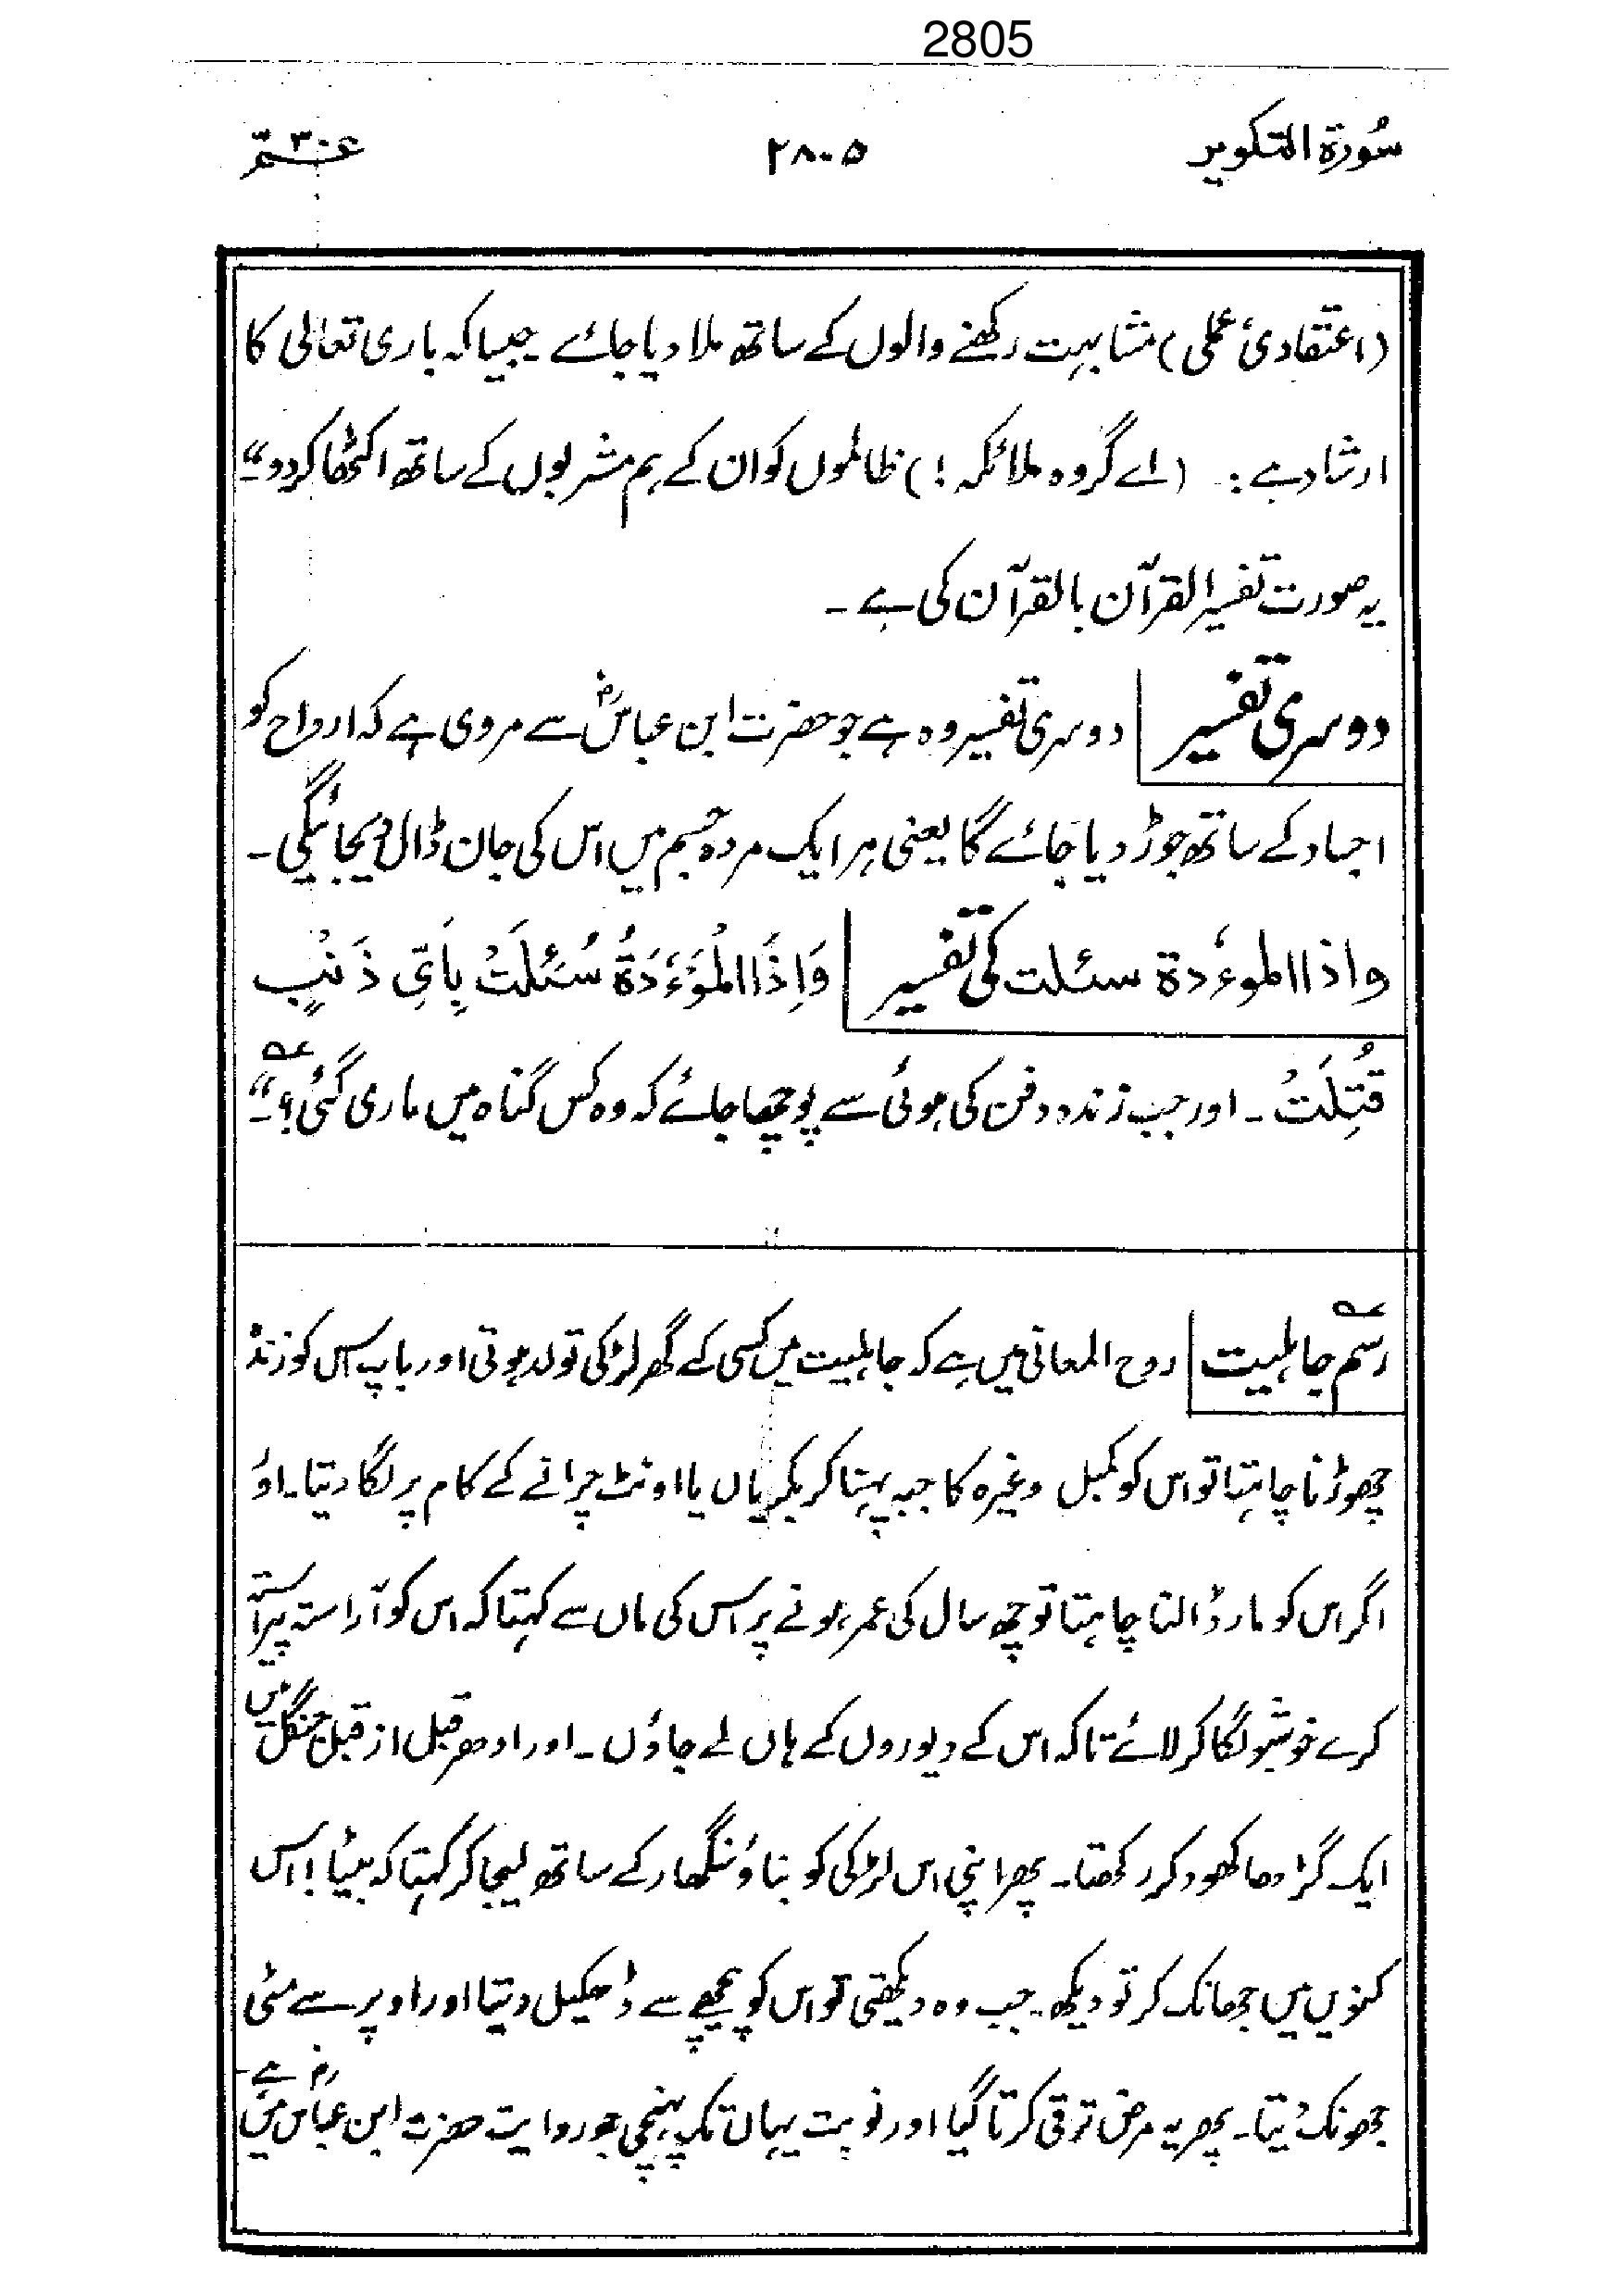 2805
سُورۃ التکویر ۲۸۰۵ عـــم ۳۰
(اعتقادیٔ عملی) مشابہت رکھنے والوں کے ساتھ ملا دیا جائے جیسا کہ باری تعالٰی کا
ارشاد ہے :۔ (اے گروہ ملائکہ !) ظالموں کو ان کے ہم مشربوں کے ساتھ اکٹھا کردو"۔
یہ صورت تفسیر القرآن بالقرآن کی ہے ۔
دوسری تفسیر دوسری تفسیر وہ ہے جو حضرت ابن عباسؓ سے مروی ہے کہ ارواح کو
اجساد کے ساتھ جوڑ دیا جائے گا یعنی ہر ایک مردہ جسم میں اس کی جان ڈال دیجائیگی ۔
واذا الموءٗدۃ سئلت کی تفسیر وَاِذَا الْمَوْءٗدَةُ سُئِلَتْ بِاَیِّ ذَنْۢبٍ
قُتِلَتْ ۔ اور جب زندہ دفن کی ہوئی سے پوچھا جائے کہ وہ کس گناہ میں ماری گئی ؟"۔ عہ
عہ رسم جاہلیت روح المعانی میں ہے کہ جاہلیت میں کسی کے گھر لڑکی تولد ہوتی اور باپ اس کو زندہ
چھوڑنا چاہتا تو اس کو کمبل وغیرہ کا جبہ پہنا کر بکریاں یا اونٹ چرانے کے کام پر لگا دیتا۔ اور
اگر اس کو مار ڈالنا چاہتا تو چھ سال کی عمر ہونے پر اس کی ماں سے کہتا کہ اس کو آراستہ پیراستہ
کرے خوشبو لگا کر لائے تاکہ اس کے دیوروں کے ہاں لے جاؤں ۔ اور ادھر قبل از قبل جنگل میں
ایک گڑھا کھود کر رکھتا۔ پھر اپنی اس لڑکی کو بناؤ سنگھار کے ساتھ لیجا کر کہتا کہ بیٹا! اس
کنویں میں جھانک کر تو دیکھ۔ جب وہ دیکھتی تو اس کو پیچھے سے ڈھکیل دیتا اور اوپر سے مٹی
جھونک دیتا۔ پھر یہ مرض ترقی کرتا گیا اور نوبت یہاں تک پہنچی جو روایت حضرت ابن عباسؓ میں ہے ۔